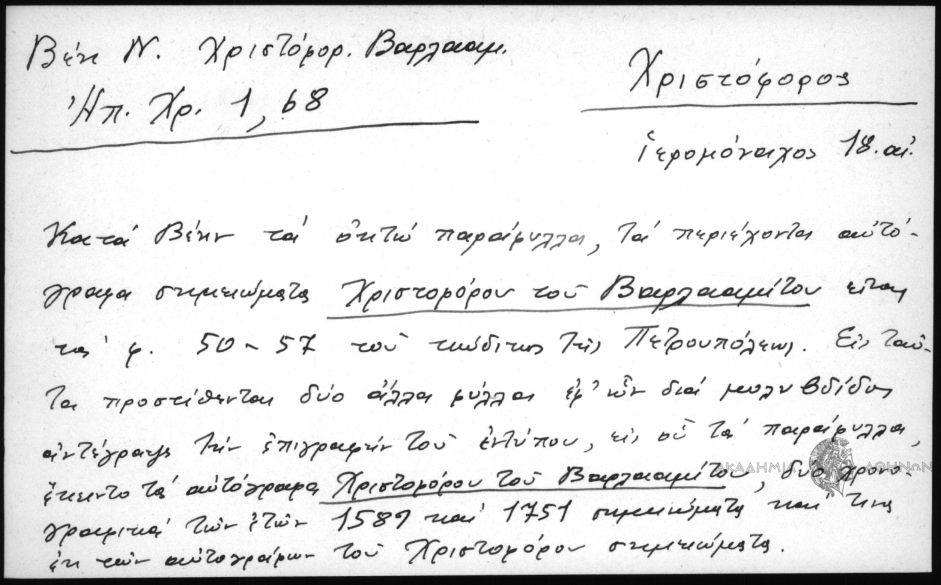 Βέη Ν. Χριστόφορ. Βαρλααμ.
Ἠπ. Χρ. 1, 68
Χριστόφορος
ἱερομόναχος 18. αἰ.
Κατά Βέην τά ὀκτώ παράφυλλα, τά περιέχοντα αὐτό-
γραφα σημειώματα Χριστοφόρου τοῦ Βαρλααμίτου εἶναι
τά φ. 50-57 τοῦ κώδικος τῆς Πετρουπόλεως. Εἰς ταῦ-
τα προστίθενται δύο ἄλλα φύλλα ἐφ' ὧν διά μολυβδίδος
ἀντέγραψε τήν ἐπιγραφήν τοῦ ἐντύπου, εἰς οὗ τά παράφυλλα,
ἔκειντο τά αὐτόγραφα Χριστοφόρου τοῦ Βαρλααμίτου, δύο χρονο-
γραφικά τῶν ἐτῶν 1589 καί 1751 σημειώματα καί τινα
ἐκ τῶν αὐτογράφων τοῦ Χριστοφόρου σημειώματα.
ΑΚΑΔΗΜΙΑ ΑΘΗΝΩΝ